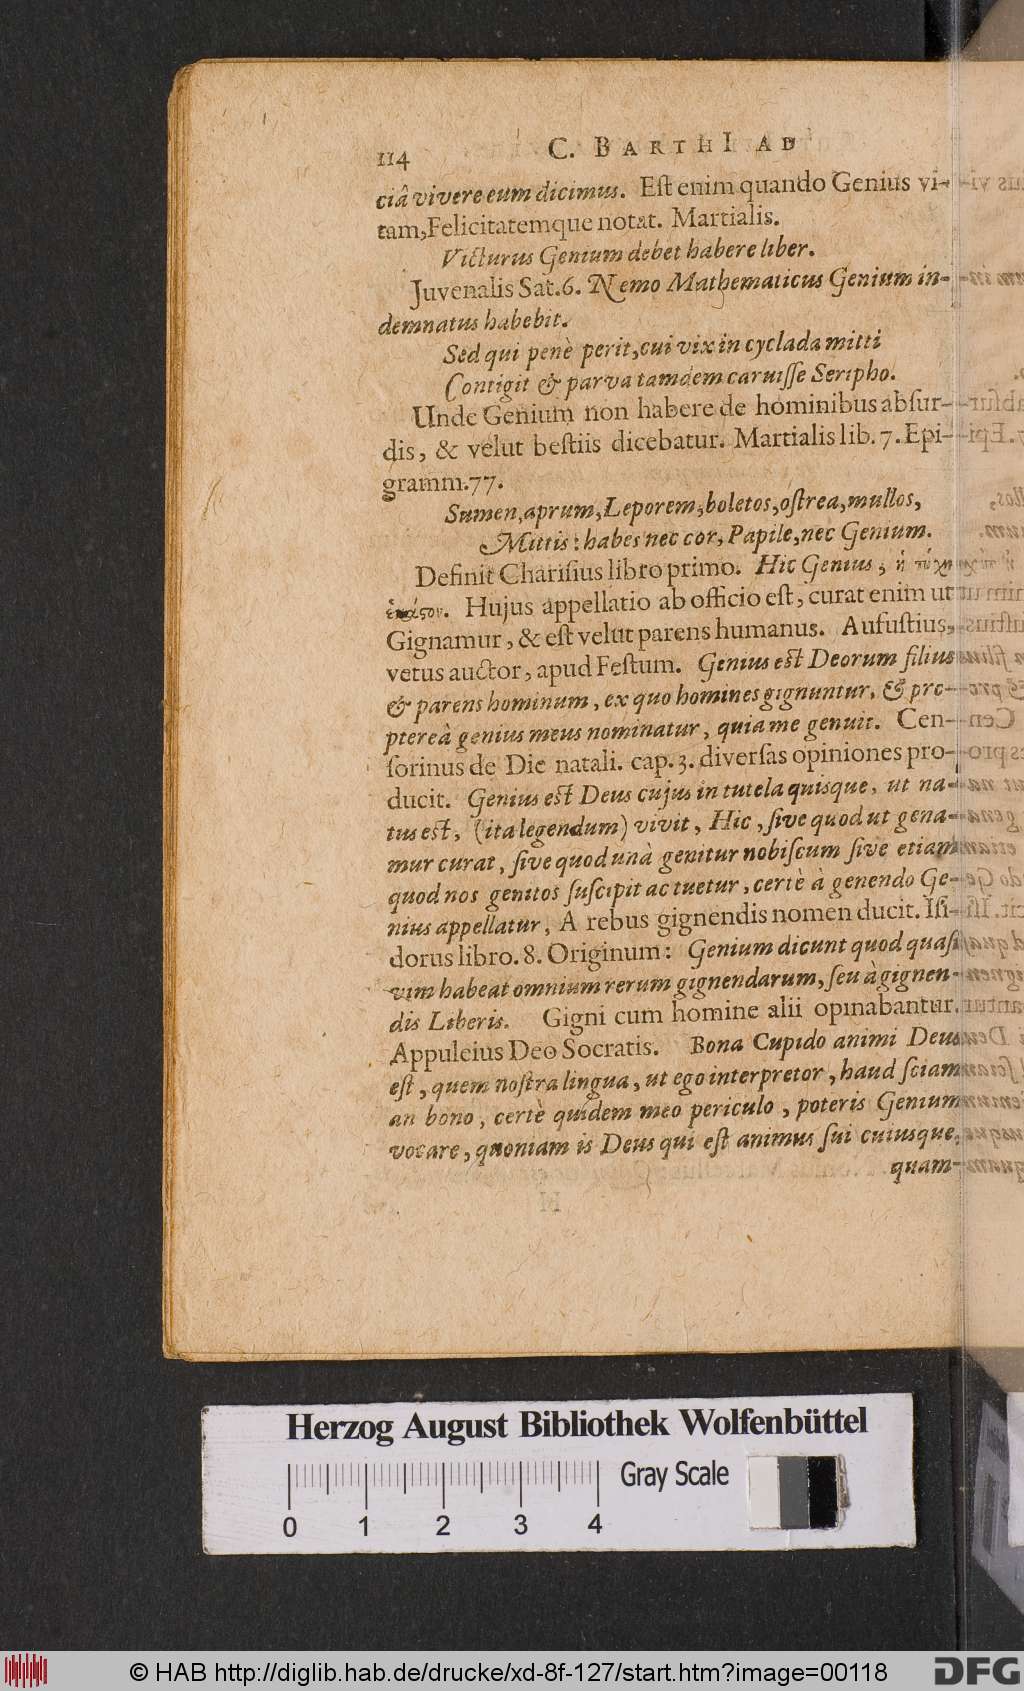 114 C. BARTHI AD
ciâ vivere eum dicimus. Est enim quando Genius vi-
tam, Felicitatemque notat. Martialis.
Victurus Genium debet habere liber.
Juvenalis Sat. 6. Nemo Mathematicus Genium in-
demnatus habebit.
Sed qui penè perit, cui vix in cyclada mitti
Contigit & parva tamdem caruisse Seripho.
Unde Genium non habere de hominibus absur-
dis, & velut bestiis dicebatur. Martialis lib. 7. Epi-
gramm. 77.
Sumen, aprum, Leporem, boletos, ostrea, mullos,
Mittis: habes nec cor, Papile, nec Genium.
Definit Charisius libro primo. Hic Genius, ἡ τύχη
ἑκάςου. Hujus appellatio ab officio est, curat enim ut
Gignamur, & est velut parens humanus. Aufustius,
vetus auctor, apud Festum. Genius est Deorum filius
& parens hominum, ex quo homines gignuntur. & pro-
ptereà genius meus nominatur, quia me genuit. Cen-
sorinus de Die natali. cap. 3. diversas opiniones pro-
ducit. Genius est Deus cujus in tutela quisque, ut na-
tus est, (ita legendum) vivit, Hic, sive quod ut gena-
mur curat, sive quod unà genitur nobiscum sive etiam
quod nos genitos suscipit ac tuetur, certè à genendo Ge-
nius appellatur, A rebus gignendis nomen ducit. Isi-
dorus libro. 8. Originum: Genium dicunt quod quasi
vim habeat omnium rerum gignendarum, seu à gignen-
dis Liberis. Gigni cum homine alii opinabantur.
Appuleius Deo Socratis. Bona Cupido animi Deus
est, quem nostra lingua, ut ego interpretor, haud sciam
an bono, certè quidem meo periculo, poteris Genium
vocare, quoniam is Deus qui est animus sui cuiusque,
quam-
Herzog August Bibliothek Wolfenbüttel
Gray Scale
0 1 2 3 4
© HAB http://diglib.hab.de/drucke/xd-8f-127/start.htm?image=00118
DFG